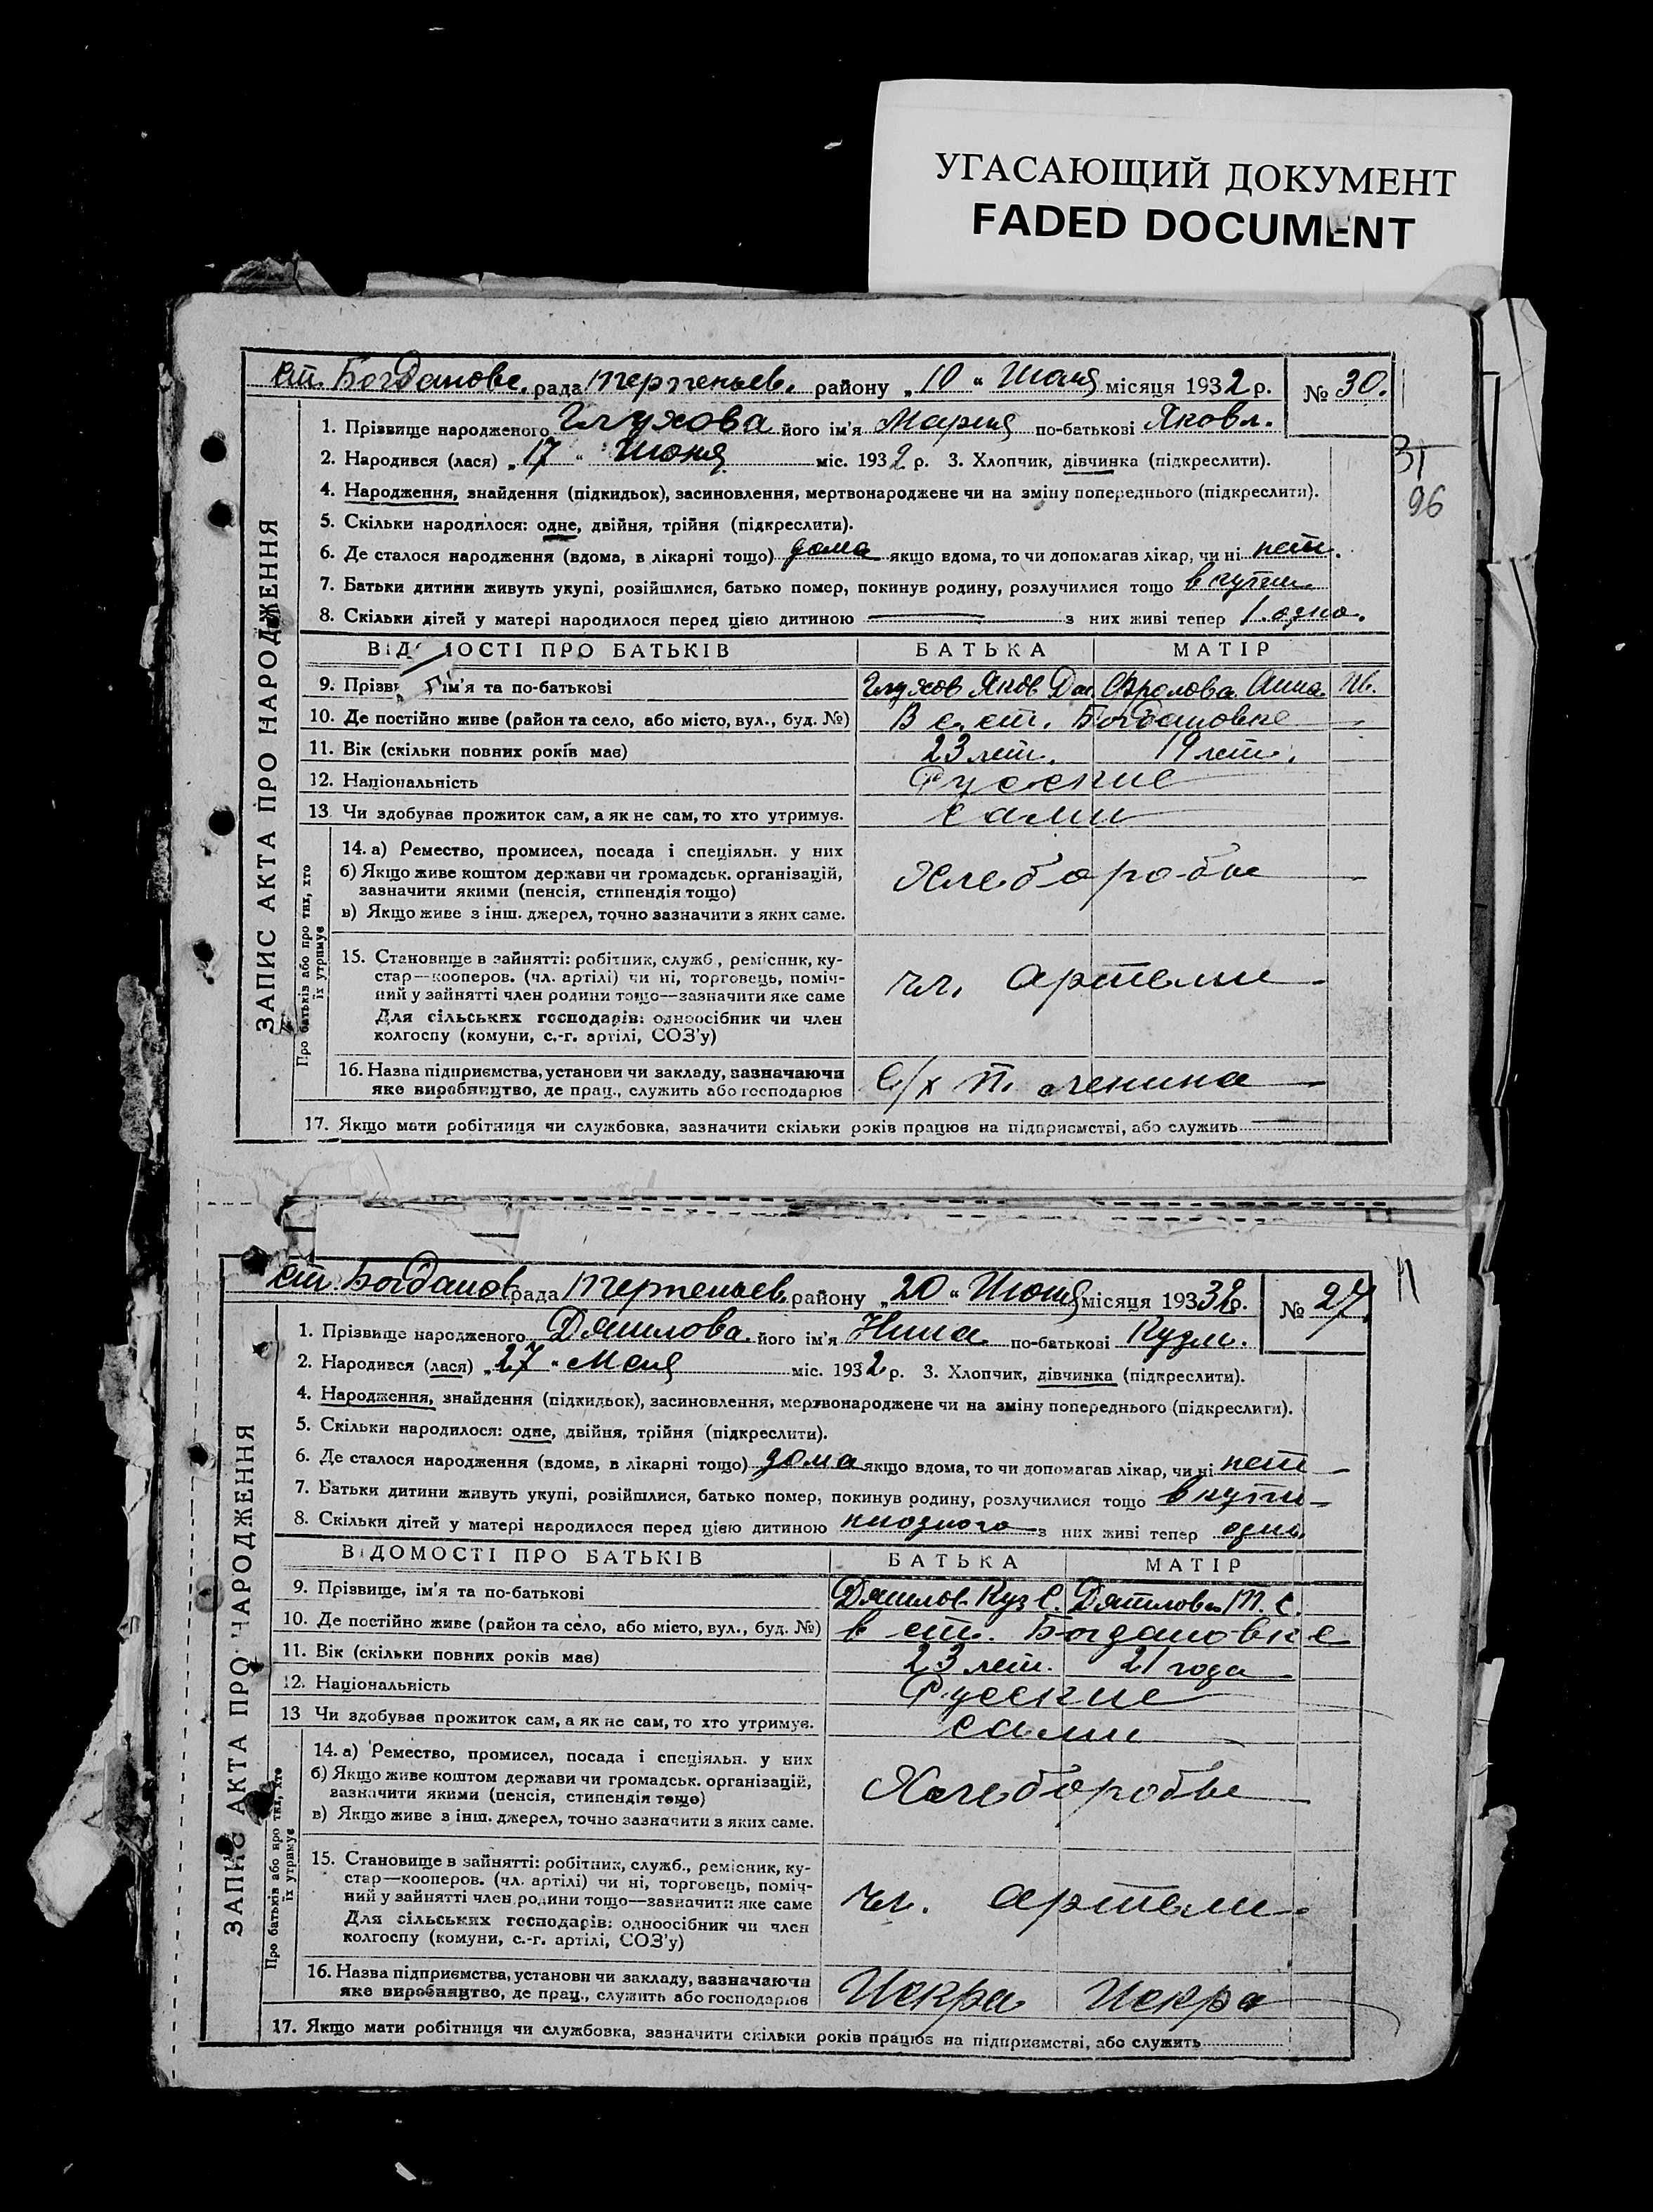 УГАСАЮЩИЙ ДОКУМЕНТ
FADED DOCUMENT
ст. Богданове. рада Терпеньев. району „10“ Июля місяця 1932 р. № 30.
ЗАПИС АКТА ПРО НАРОДЖЕННЯ
1. Прізвище народженого Глухова його ім'я Мария по-батькові Яковл.
2. Народився (лася) „17“ Июня міс. 1932 р. 3. Хлопчик, дівчинка (підкреслити).
4. Народження, знайдення (підкидьок), засиновлення, мертвонароджене чи на зміну попереднього (підкреслити).
5. Скільки народилося: одне, двійня, трійня (підкреслити).
6. Де сталося народження (вдома, в лікарні тощо) дома якщо вдома, то чи допомагав лікар, чи ні нет.
7. Батьки дитини живуть укупі, розійшлися, батько помер, покинув родину, розлучилися тощо вкупи
8. Скільки дітей у матері народилося перед цією дитиною — з них живі тепер 1 одно.
96
ВІДОМОСТІ ПРО БАТЬКІВ БАТЬКА МАТІР
9. Прізви ім'я та по-батькові Глухов Яков Дан. Фролова Анна Ив.
10. Де постійно живе (район та село, або місто, вул., буд. №) В с. ст. Богдановке
11. Вік (скільки повних років має) 23 лет. 19 лет.
12. Національність Русские
13. Чи здобуває прожиток сам, а як не сам, то хто утримує. сами
Про батьків або про тих, хто їх утримує
14. а) Ремество, промисел, посада і спеціяльн. у них
б) Якщо живе коштом держави чи громадськ. організацій,
зазначити якими (пенсія, стипендія тощо)
в) Якщо живе з інш. джерел, точно зазначити з яких саме.
Хлеборобы
15. Становище в зайнятті: робітник, служб., ремісник, ку-
стар—кооперов. (чл. артілі) чи ні, торговець, поміч-
ний у зайнятті член родини тощо—зазначити яке саме
Для сільських господарів: одноосібник чи член
колгоспу (комуни, с.-г. артілі, СОЗ'у)
чл. артели
16. Назва підприємства, установи чи закладу, зазначаючи
яке виробництво, де прац., служить або господарює
С/х п. Ленина
17. Якщо мати робітниця чи службовка, зазначити скільки років працює на підприємстві, або служить
ст. Богданов рада Терпеньев. району „20“ Июня місяця 19332р. № 27.
ЗАПИС АКТА ПРО НАРОДЖЕННЯ
1. Прізвище народженого Дятлова його ім'я Нина по-батькові Кузм.
2. Народився (лася) „27“ Мая міс. 1932 р. 3. Хлопчик, дівчинка (підкреслити).
4. Народження, знайдення (підкидьок), засиновлення, мертвонароджене чи на зміну попереднього (підкреслити).
5. Скільки народилося: одне, двійня, трійня (підкреслити).
6. Де сталося народження (вдома, в лікарні тощо) дома якщо вдома, то чи допомагав лікар, чи ні нет
7. Батьки дитини живуть укупі, розійшлися, батько помер, покинув родину, розлучилися тощо вкупи
8. Скільки дітей у матері народилося перед цією дитиною ниодного з них живі тепер один.
ВІДОМОСТІ ПРО БАТЬКІВ БАТЬКА МАТІР
9. Прізвище, ім'я та по-батькові Дятлов Куз С. Дятлова Т. С.
10. Де постійно живе (район та село, або місто, вул., буд. №) в ст. Богдановке
11. Вік (скільки повних років має) 23 лет. 21 года
12. Національність Русские
13 Чи здобуває прожиток сам, а як не сам, то хто утримує. сами
Про батьків або про тих, хто їх утримує
14. а) Ремество, промисел, посада і спеціяльн. у них
б) Якщо живе коштом держави чи громадськ. організацій,
зазначити якими (пенсія, стипендія тощо)
в) Якщо живе з інш. джерел, точно зазначити з яких саме.
Хлеборобы
15. Становище в зайнятті: робітник, служб., ремісник, ку-
стар—кооперов. (чл. артілі) чи ні, торговець, поміч-
ний у зайнятті член родини тощо—зазначити яке саме
Для сільських господарів: одноосібник чи член
колгоспу (комуни, с.-г. артілі, СОЗ'у)
чл. артели
16. Назва підприємства, установи чи закладу, зазначаючи
яке виробництво, де прац., служить або господарює
Искра Искра
17. Якщо мати робітниця чи службовка, зазначити скільки років працює на підприємстві, або служить